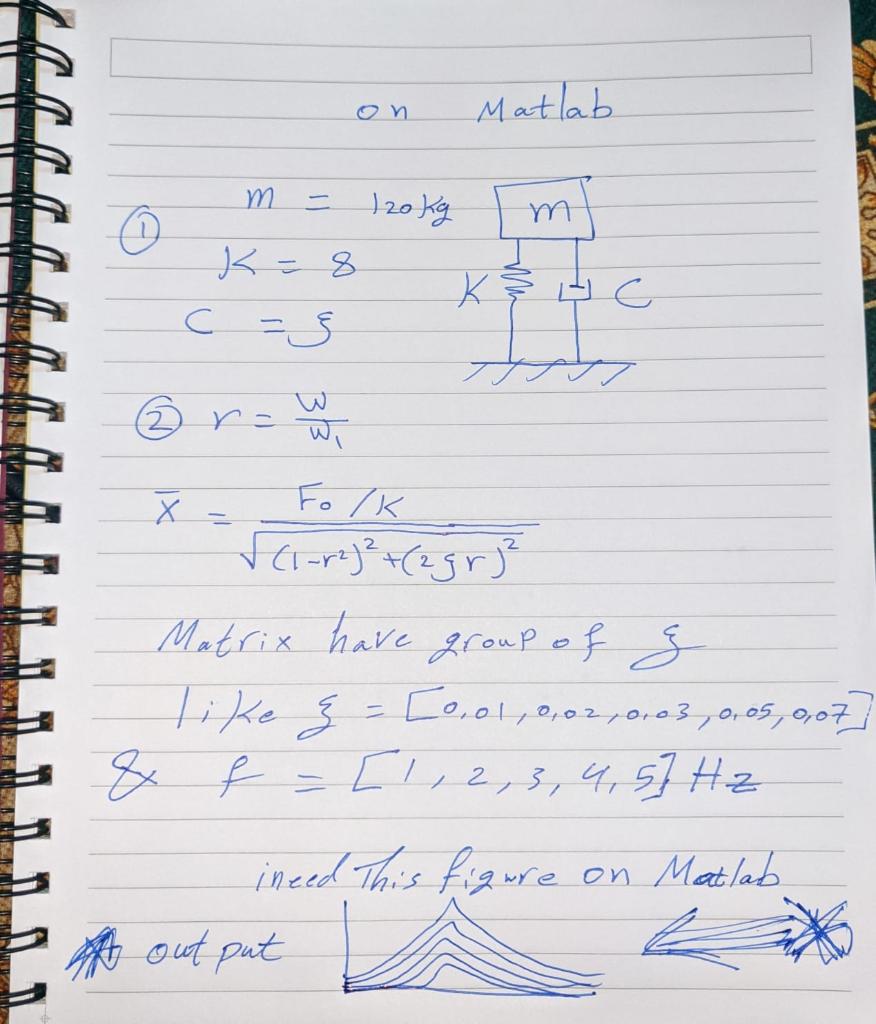 on Matlab
① m = 120 kg
K = 8
C = ξ
m
K
C
② r = W/W₁
X̄ = F₀/K / √((1-r²)²+(2ξr)²)
Matrix have group of ξ
like ξ = [0,01, 0,02, 0,03, 0,05, 0,07]
& f = [1, 2, 3, 4, 5] Hz
i need This figure on Matlab
out put